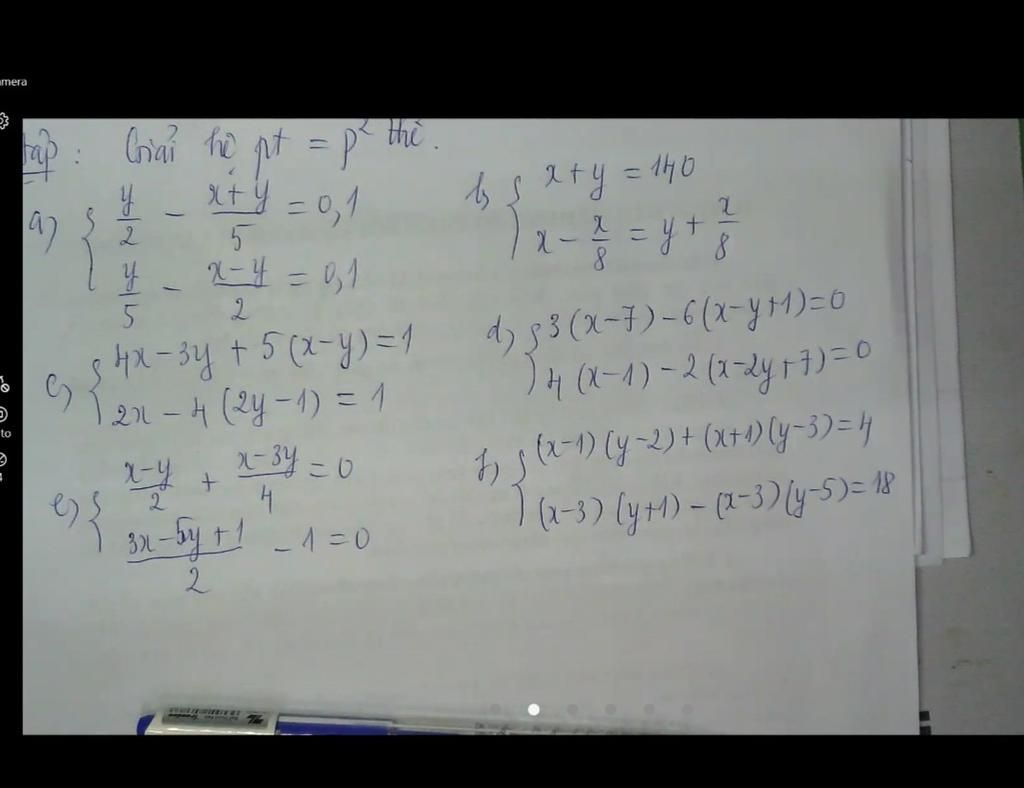 tập: Giải hệ pt = p² thế.
a) { y/2 - (x+y)/5 = 0,1
y/5 - (x-y)/2 = 0,1
b) { x+y = 140
x - x/8 = y + x/8
c) { 4x-3y + 5(x-y)=1
2x - 4(2y-1) = 1
d) { 3(x-7)-6(x-y+1)=0
4(x-1)-2(x-2y+7)=0
e) { (x-y)/2 + (x-3y)/4 = 0
(3x-5y+1)/2 - 1 = 0
f) { (x-1)(y-2)+(x+1)(y-3)=4
(x-3)(y+1)-(x-3)(y-5)=18